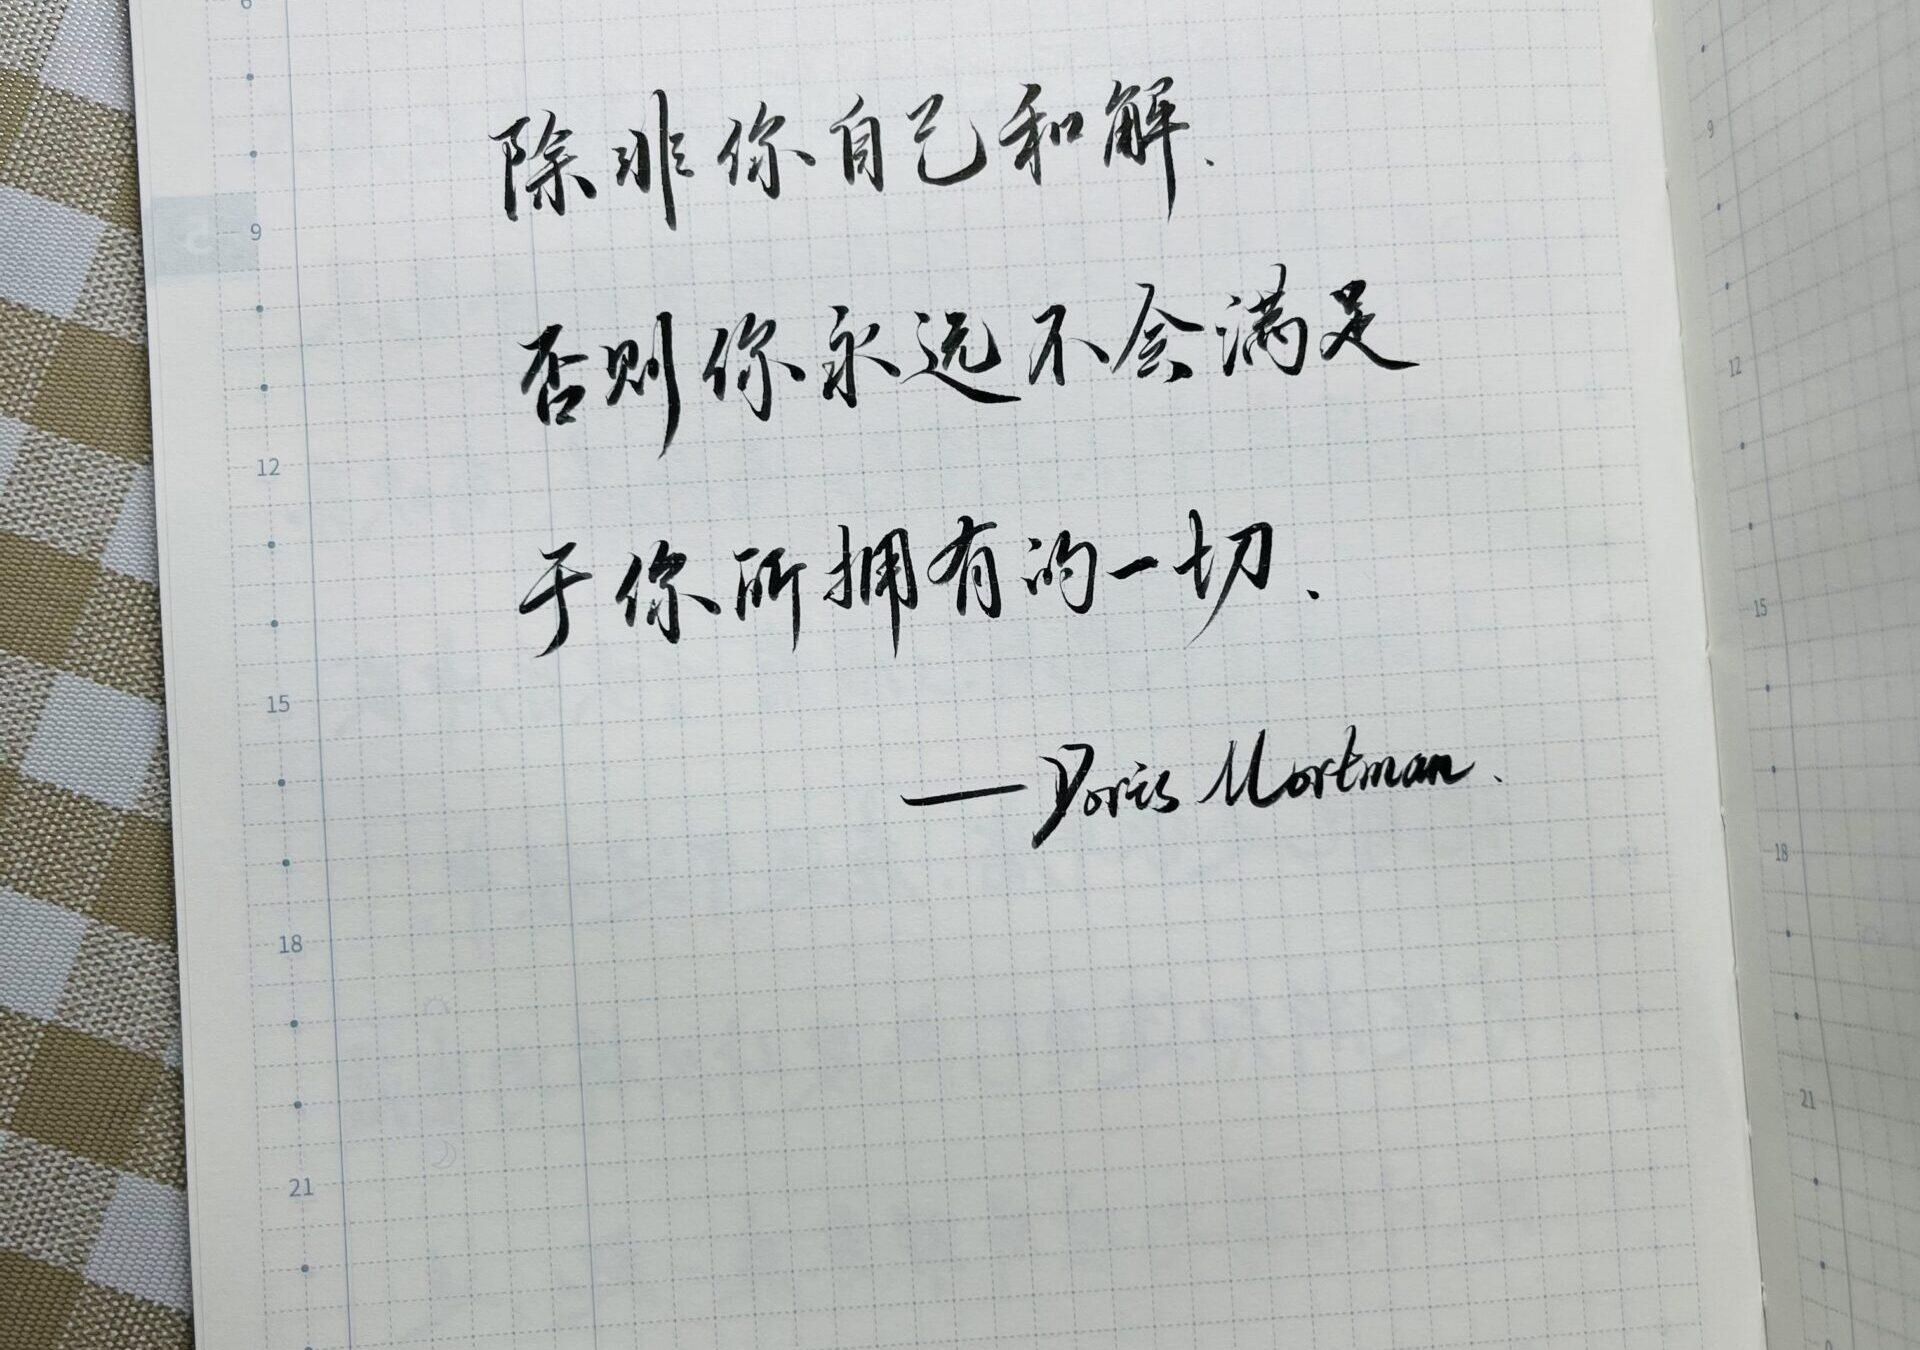 除非你自己和解.
否则你永远不会满足
于你所拥有的一切.
—Doris Mortman.
6
9
12
15
18
21
5
9
12
15
18
21